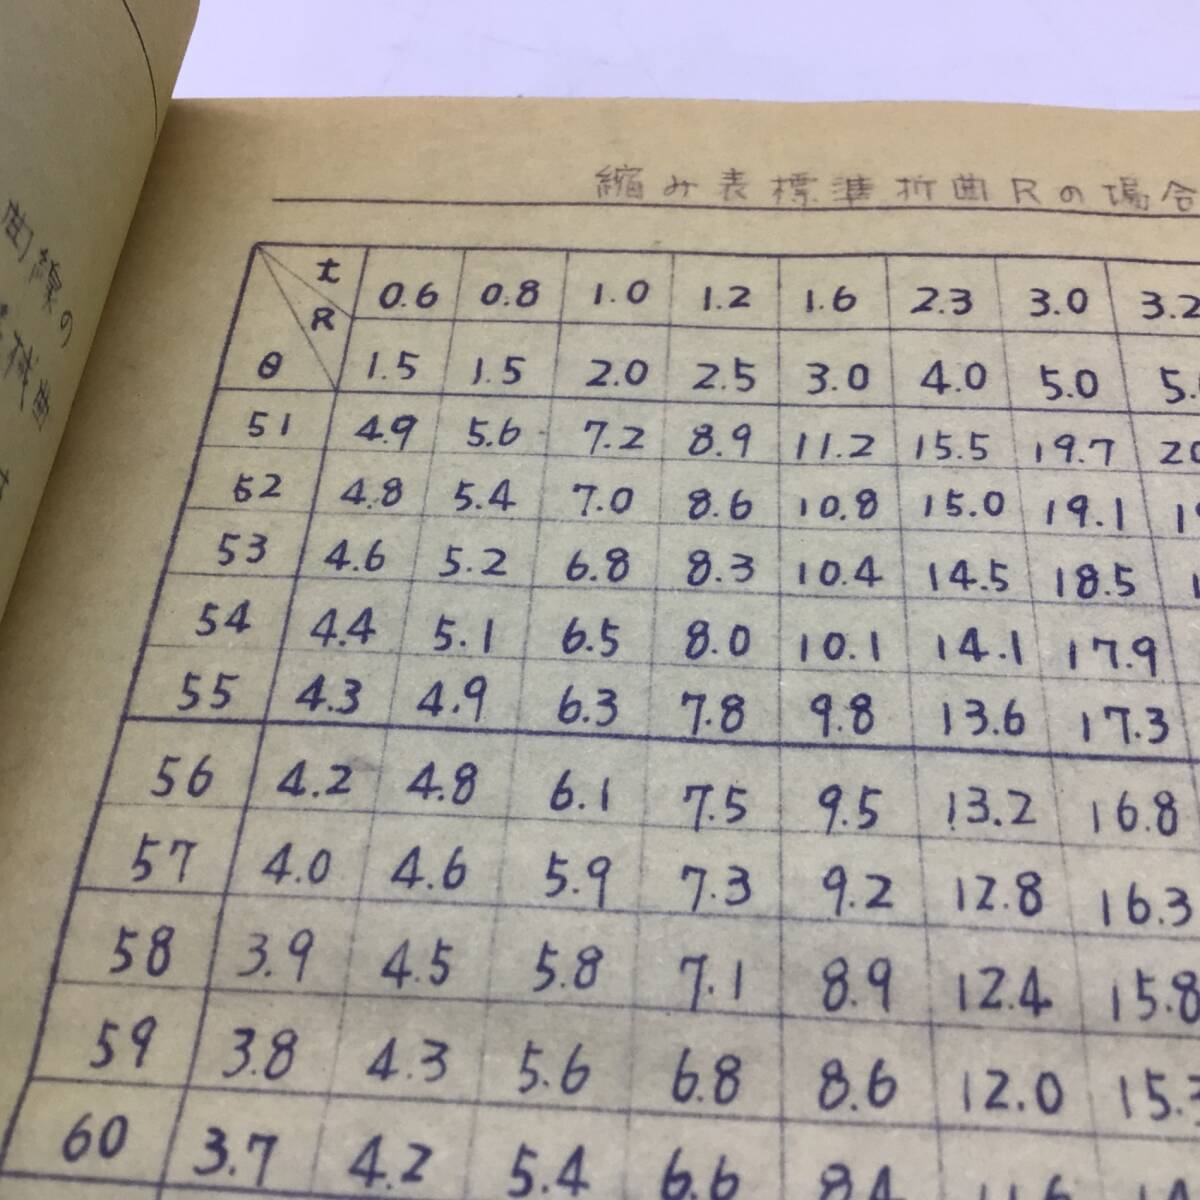 縮み表標準折曲Rの場合
t 0.6 0.8 1.0 1.2 1.6 2.3 3.0 3.2
R 1.5 1.5 2.0 2.5 3.0 4.0 5.0
θ
51 4.9 5.6 7.2 8.9 11.2 15.5 19.7
52 4.8 5.4 7.0 8.6 10.8 15.0 19.1
53 4.6 5.2 6.8 8.3 10.4 14.5 18.5
54 4.4 5.1 6.5 8.0 10.1 14.1 17.9
55 4.3 4.9 6.3 7.8 9.8 13.6 17.3
56 4.2 4.8 6.1 7.5 9.5 13.2 16.8
57 4.0 4.6 5.9 7.3 9.2 12.8 16.3
58 3.9 4.5 5.8 7.1 8.9 12.4 15.8
59 3.8 4.3 5.6 6.8 8.6 12.0
60 3.7 4.2 5.4 6.6 8.4 11.6
曲線の
械曲